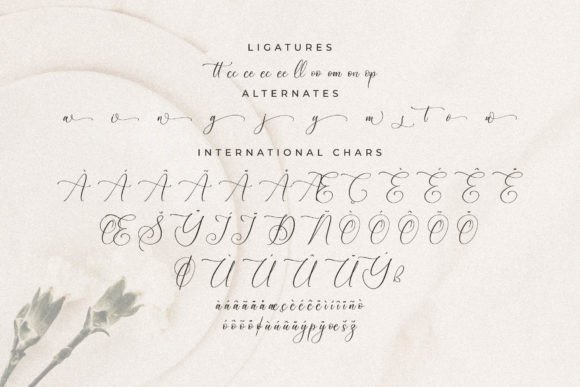 LIGATURES
tt cc ee ec ee ll oo om on op
ALTERNATES
a v w g j y m s t o w
INTERNATIONAL CHARS
À Á Â Ã Ä Å Æ Ç È É Ê Ë
Œ Š Ÿ Ï Ì Ð Ñ Ò Ó Ô Õ Ö
Ø Ù Ú Û Ü Ý ß
àáâãäåæçèéêëìíîïñò
óôõöøùúûüýþÿœšž